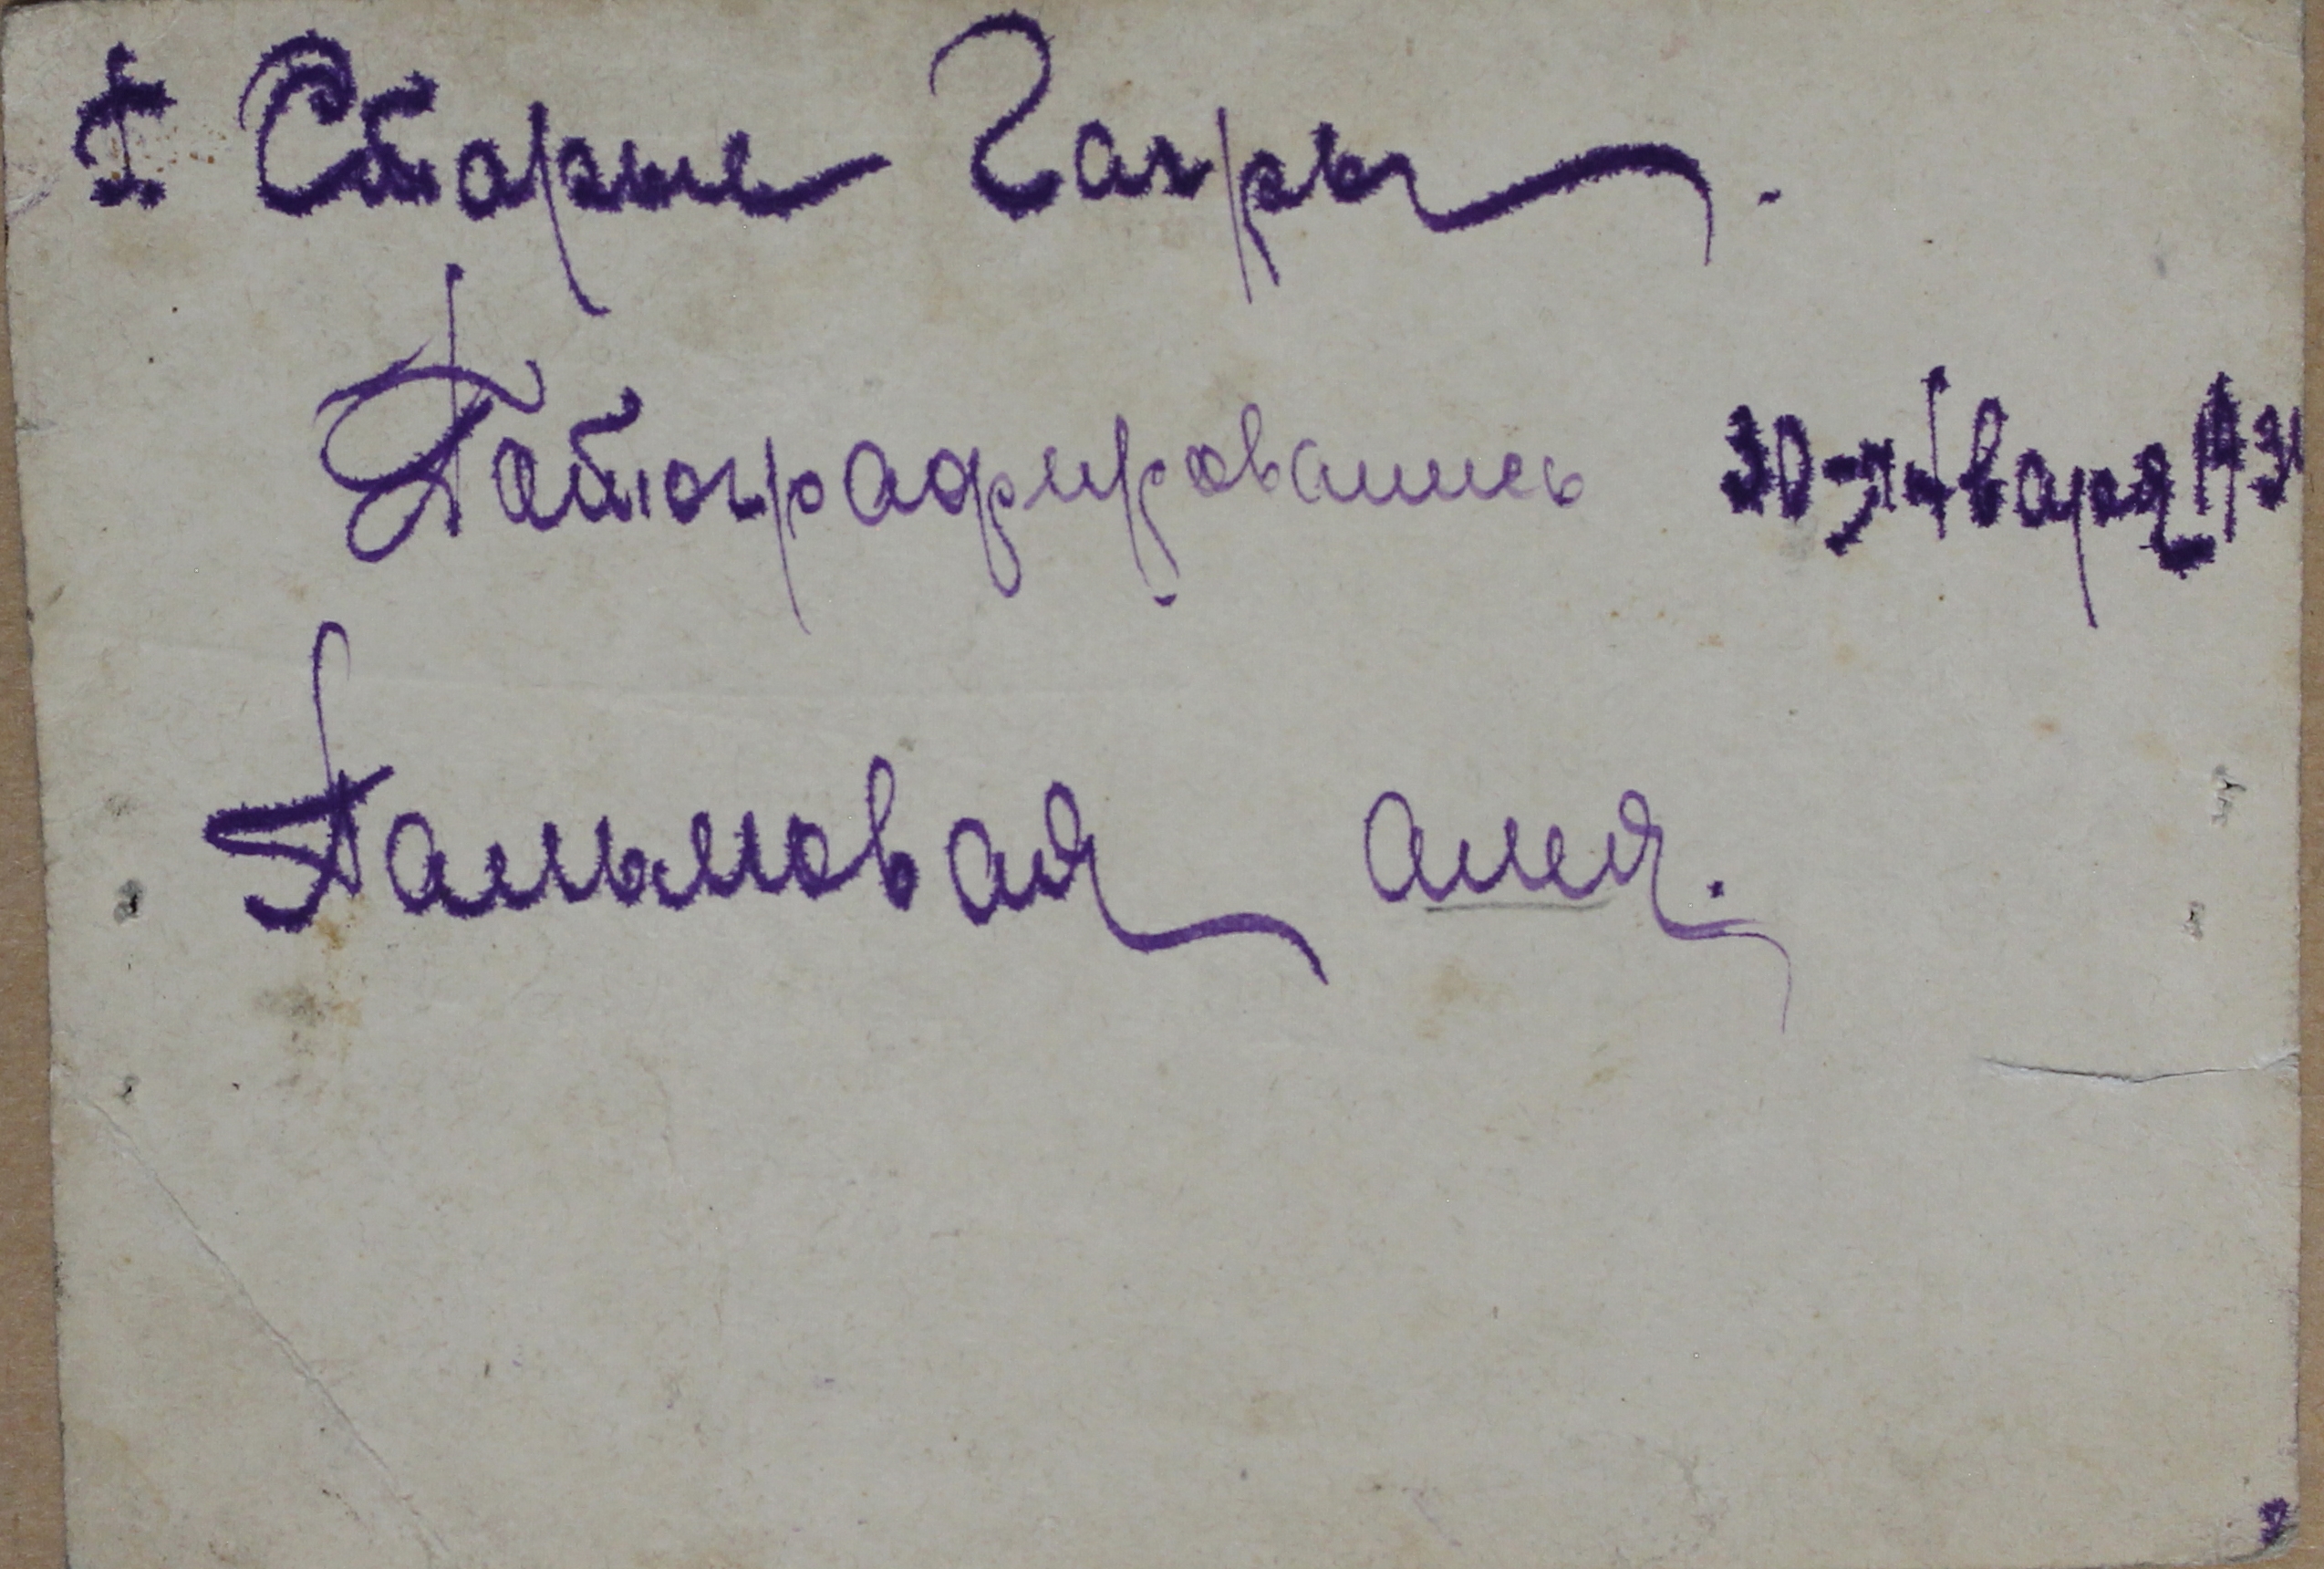 I Старые Гагры.
Фотографировались 30-января 193
Пальмовая алея.